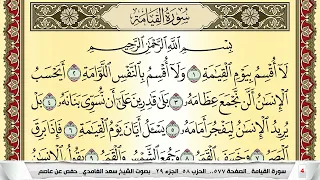 سورة القيامة
بسم الله الرحمن الرحيم
لا أقسم بيوم القيمة ١ ولا أقسم بالنفس اللوامة ٢ أيحسب
الإنسن ألن نجمع عظامه ٣ بلى قدرين على أن نسوي بنانه ٤ بل
يريد الإنسن ليفجر أمامه ٥ يسل أيان يوم القيمة ٦ فإذا برق
البصر ٧ وخسف القمر ٨ وجمع الشمس والقمر ٩ يقول
سورة القيامة .. الصفحة ٥٧٧ .. الحزب ٥٨ .. الجزء ٢٩ .. بصوت الشيخ سعد الغامدي .. حفص عن عاصم
4